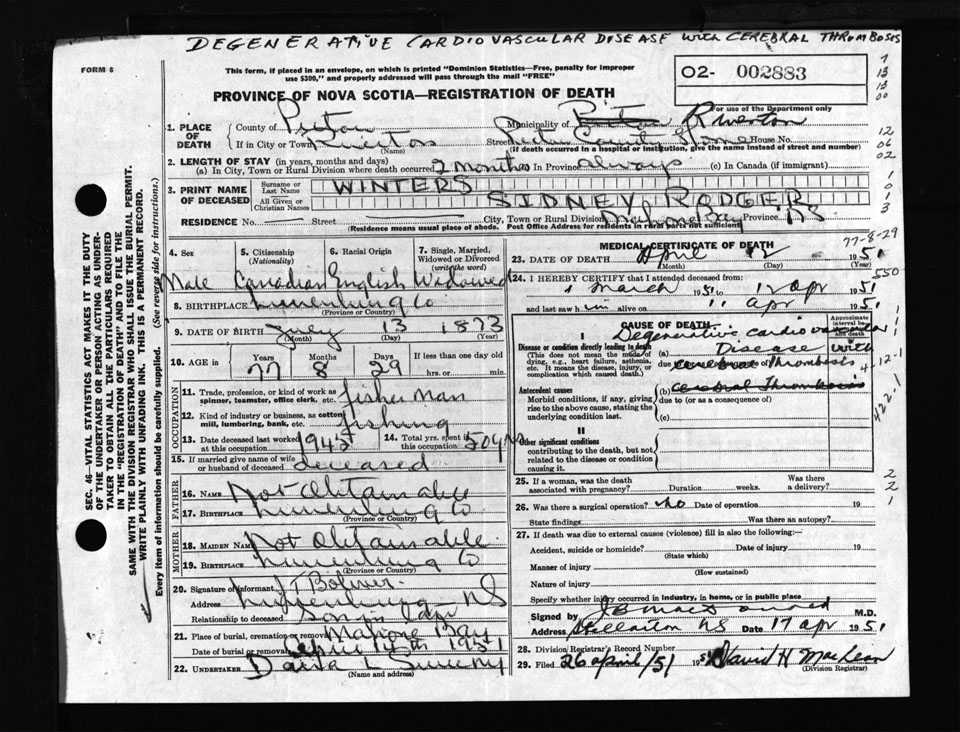 DEGENERATIVE CARDIOVASCULAR DISEASE with CEREBRAL THROMBOSES
FORM 6
This form, if placed in an envelope, on which is printed "Dominion Statistics—Free, penalty for improper
use $300," and properly addressed will pass through the mail "FREE"
02- 002883
For use of the Department only
PROVINCE OF NOVA SCOTIA—REGISTRATION OF DEATH
1. PLACE OF DEATH
County of Pictou Municipality of Pictou Riverton
If in City or Town Riverton Street Pictou County Home House No.
(Name) (If death occurred in a hospital or institution, give the name instead of street and number)
2. LENGTH OF STAY (in years, months and days)
(a) In City, Town or Rural Division where death occurred 2 months In Province always (c) In Canada (if immigrant)
3. PRINT NAME OF DECEASED
Surname or Last Name WINTERS
All Given or Christian Names SIDNEY RODGERS
RESIDENCE No. Street City, Town or Rural Division Mahone Bay Province NS
(Residence means usual place of abode. Post Office Address for residents in rural parts not sufficient)
4. Sex
5. Citizenship (Nationality)
6. Racial Origin
7. Single, Married, Widowed or Divorced (write the word)
Male Canadian English Widowed
8. BIRTHPLACE Lunenburg Co
(Province or Country)
9. DATE OF BIRTH July 13 1873
(Month) (Day)
10. AGE in Years Months Days If less than one day old
77 8 29 hrs. or min.
OCCUPATION
11. Trade, profession, or kind of work as
spinner, teamster, office clerk, etc. fisherman
12. Kind of industry or business, as cotton
mill, lumbering, bank, etc. fishing
13. Date deceased last worked at this occupation 1945
14. Total yrs. spent in this occupation 50 yrs
15. If married give name of wife
or husband of deceased deceased
FATHER
16. NAME Not Obtainable
17. BIRTHPLACE Lunenburg Co
(Province or Country)
MOTHER
18. MAIDEN NAME Not Obtainable
19. BIRTHPLACE Lunenburg Co
(Province or Country)
20. Signature of informant
Address Lunenburg NS
Relationship to deceased
21. Place of burial, cremation or removal Mahone Bay
Date of burial or removal April 14th 1951
22. UNDERTAKER
(Name and address)
MEDICAL CERTIFICATE OF DEATH
77-8-29
23. DATE OF DEATH April 12 1951
(Month) (Day)
24. I HEREBY CERTIFY that I attended deceased from:
1 March 1951 12 apr 1951
and last saw him alive on 11 apr 1951
550
CAUSE OF DEATH
Approximate interval between onset and death
I
Disease or condition directly leading to death
(This does not mean the mode of dying, e.g., heart failure, asthenia, etc. It means the disease, injury, or complication which caused death.)
(a) Degenerative cardiovascular Disease with
due to cerebral Thromboses
Antecedent causes
Morbid conditions, if any, giving rise to the above cause, stating the underlying condition last.
(b) cerebral Thromboses
due to (or as a consequence of)
(c)
II
Other significant conditions
contributing to the death, but not related to the disease or condition causing it.
4-12-1
422.1
25. If a woman, was the death associated with pregnancy? Duration weeks. Was there a delivery?
26. Was there a surgical operation? no Date of operation 19
State findings Was there an autopsy?
27. If death was due to external causes (violence) fill in also the following:—
Accident, suicide or homicide? Date of injury 19
(State which)
Manner of injury
(How sustained)
Nature of injury
Specify whether injury occurred in industry, in home, or in public place
Signed by M.D.
Address Stellarton NS Date 17 apr 1951
28. Division Registrar's Record Number
29. Filed 26 april/51 19 David H MacLean
(Division Registrar)
SEC. 46—VITAL STATISTICS ACT MAKES IT THE DUTY
OF THE UNDERTAKER OR PERSON ACTING AS UNDER-
TAKER TO OBTAIN ALL THE PARTICULARS REQUIRED
IN THE "REGISTRATION OF DEATH" AND TO FILE THE
SAME WITH THE DIVISION REGISTRAR WHO SHALL ISSUE THE BURIAL PERMIT.
WRITE PLAINLY WITH UNFADING INK. THIS IS A PERMANENT RECORD.
Every item of information should be carefully supplied. (See reverse side for instructions.)